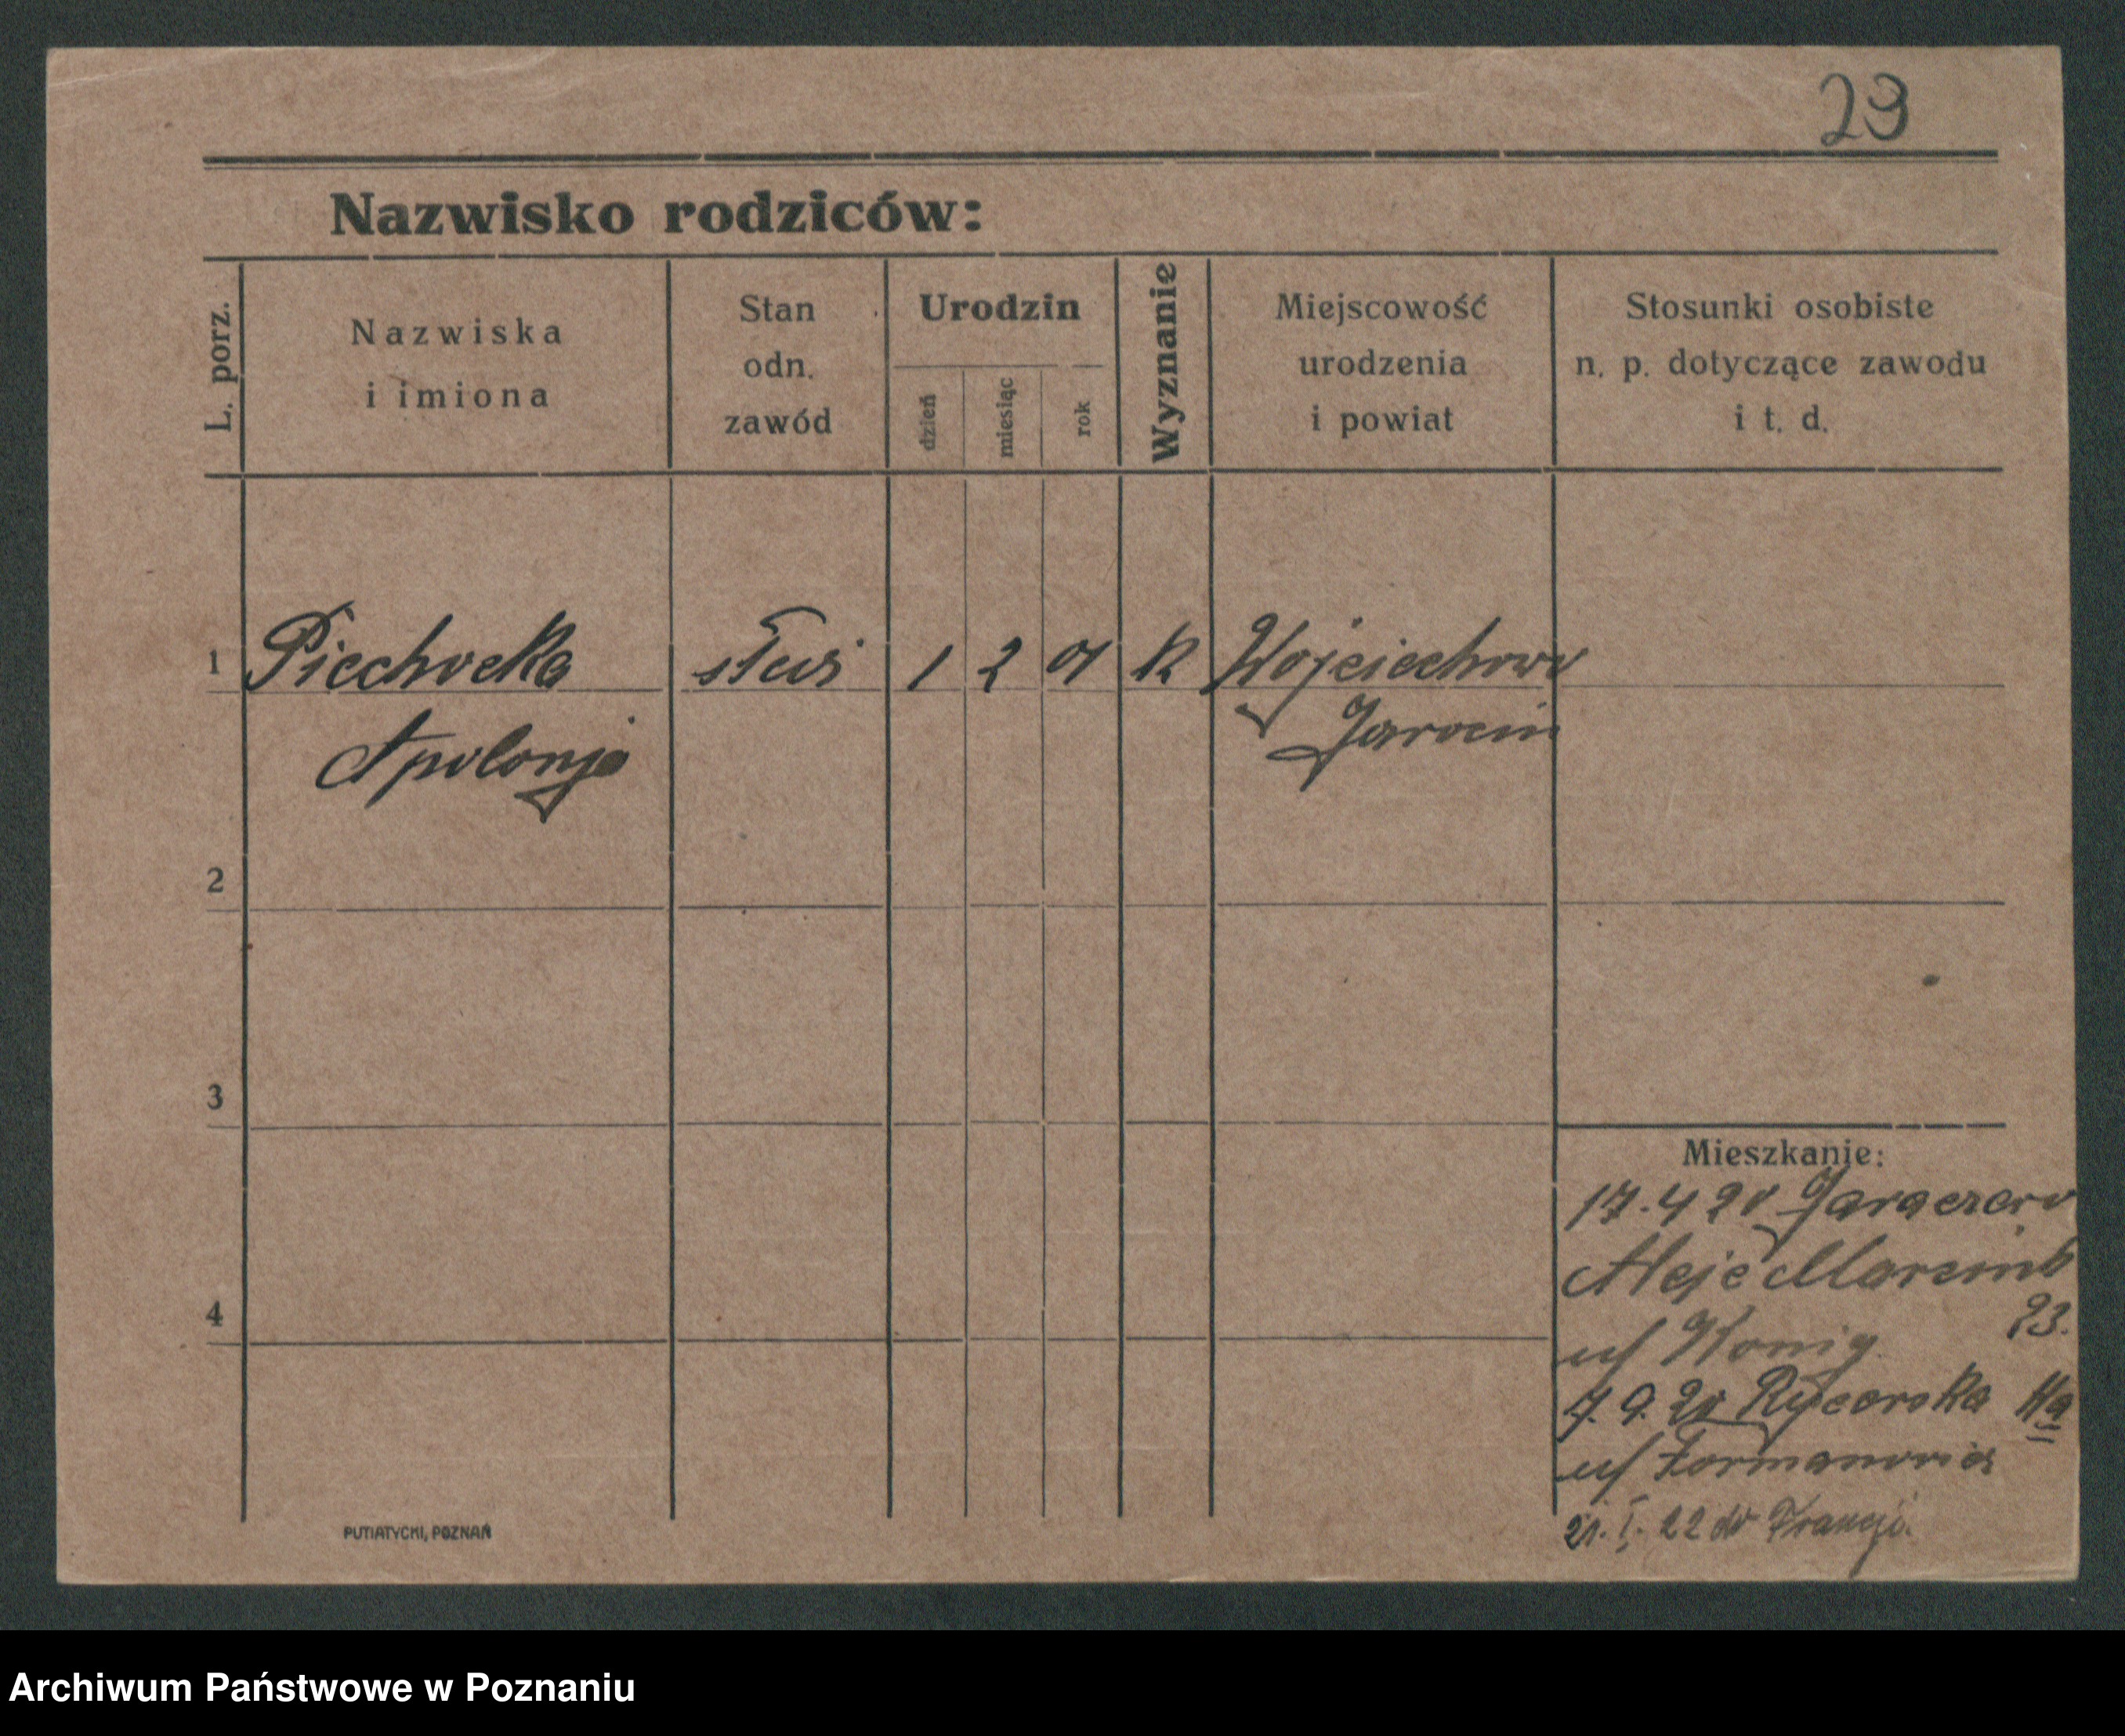 29
Nazwisko rodziców:
L. porz.
Nazwiska
i imiona
Stan
odn.
zawód
Urodzin
dzień
miesiąc
rok
Wyznanie
Miejscowość
urodzenia
i powiat
Stosunki osobiste
n. p. dotyczące zawodu
i t. d.
1 Piechocka służ 1 2 01 k Wojciechowo
Apolonja Jarocin
2
3
4
Mieszkanie:
17.4 20 Jaraczewo
Aleje Marcink
23.
u/ König
7.9.20 Rycerska 11a
u/
21. I. 22 do Francji.
PUTIATYCKI, POZNAŃ
Archiwum Państwowe w Poznaniu